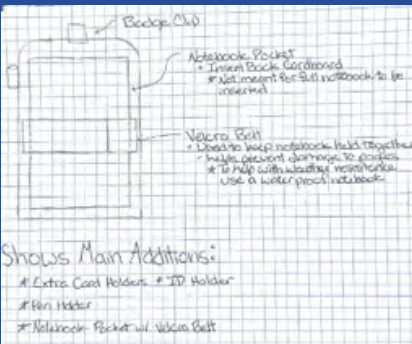 Badge Clip
Notebook Pocket
• Insert Back Cardboard
* Not meant for full notebook to be
inserted
Velcro Belt
• Used to keep notebook held together
- helps prevent damage to pages
* To help with weather resistance
use a waterproof notebook
Shows Main Additions:
* Extra Card Holders * ID Holder
* Pen Holder
* Notebook Pocket w/ Velcro Belt